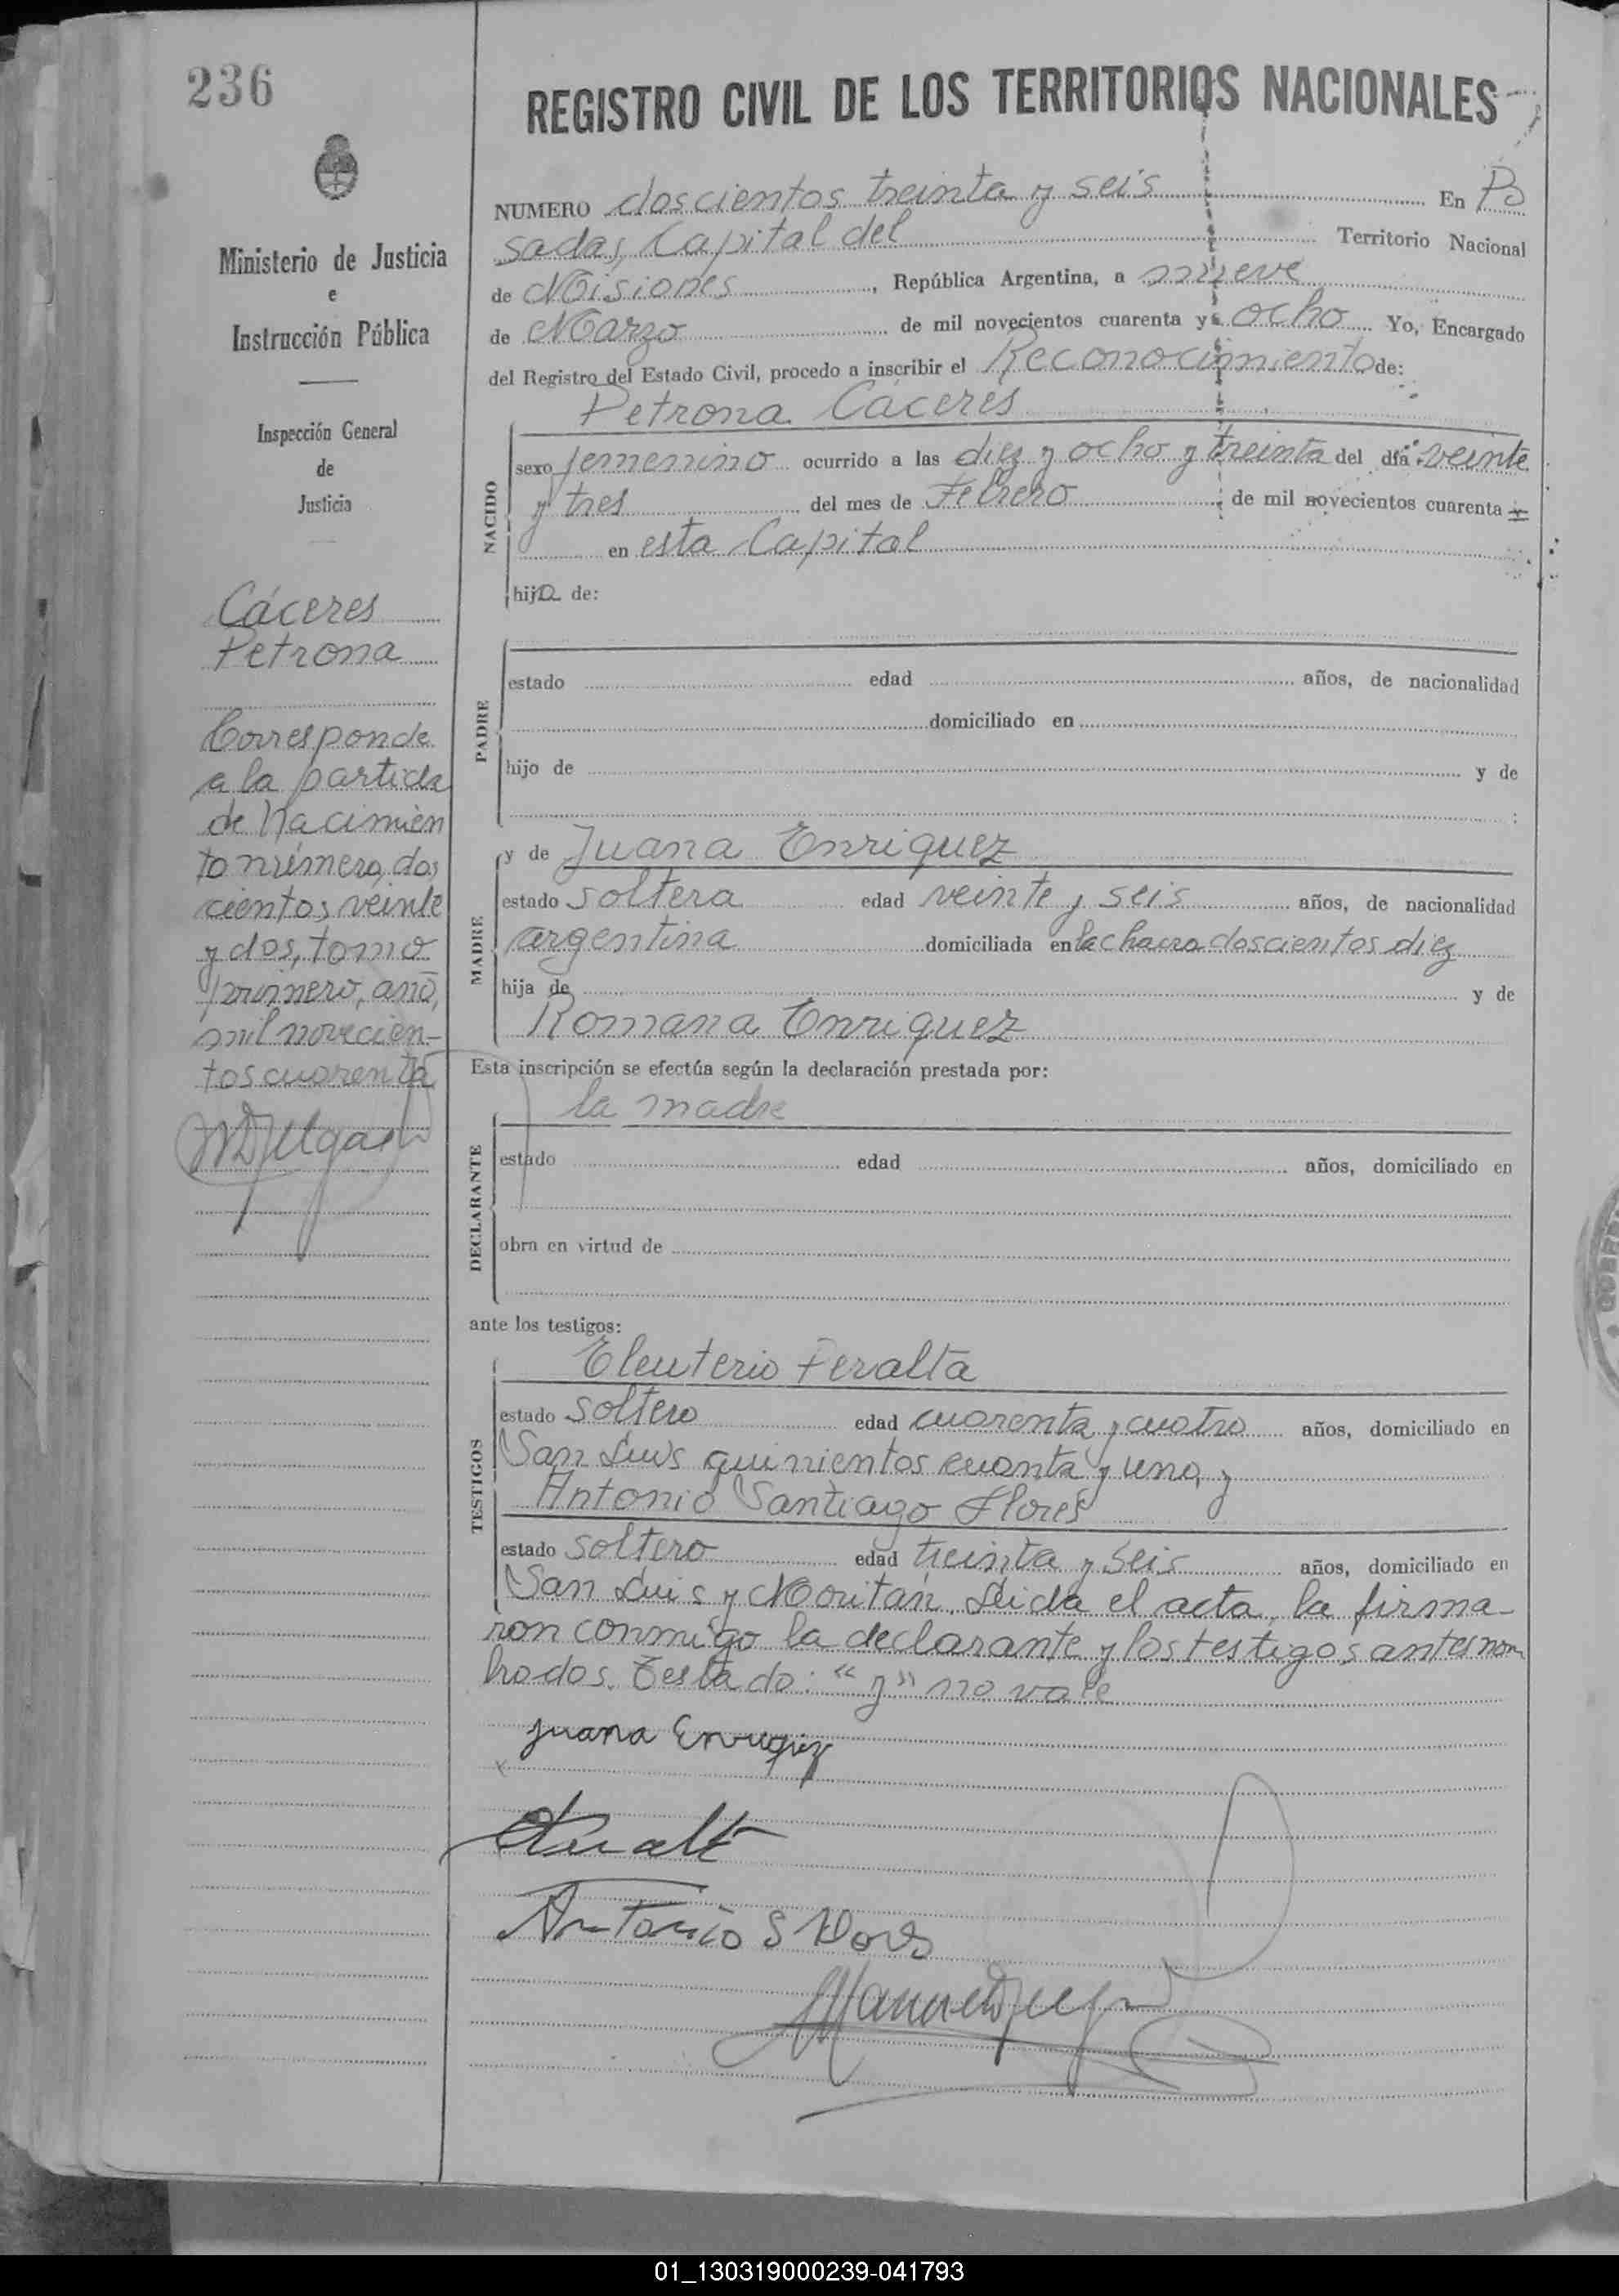 236
REGISTRO CIVIL DE LOS TERRITORIOS NACIONALES
Ministerio de Justicia
e
Instrucción Pública
Inspección General
de
Justicia
Cáceres
Petrona
Corresponde
a la partida
de Nacimien
to número, dos
cientos veinte
y dos, tomo
primero, año,
mil novecien-
tos cuarenta
NUMERO doscientos treinta y seis En Po
sadas, Capital del Territorio Nacional
de Misiones, República Argentina, a nueve
de Marzo de mil novecientos cuarenta y ocho Yo, Encargado
del Registro del Estado Civil, procedo a inscribir el Reconocimiento de:
Petrona Cáceres
NACIDO
sexo femenino ocurrido a las diez y ocho y treinta del día veinte
y tres del mes de Febrero de mil novecientos cuarenta y
en esta Capital
hija de:
PADRE
estado edad años, de nacionalidad
domiciliado en
hijo de y de
:
MADRE
y de Juana Enriquez
estado soltera edad veinte y seis años, de nacionalidad
argentina domiciliada en la chacra doscientos diez
hija de y de
Romana Enriquez
Esta inscripción se efectúa según la declaración prestada por:
la madre
DECLARANTE
estado edad años, domiciliado en
obra en virtud de
ante los testigos:
TESTIGOS
Eleuterio Peralta
estado soltero edad cuarenta y cuatro años, domiciliado en
San Luis quinientos cuanta y uno, y
Antonio Santiago Flores
estado soltero edad treinta y seis años, domiciliado en
San Luis y Moritán. Leida el acta, la firma-
ron conmigo la declarante y los testigos antes nom
brados. Testado: "y" no vale
Juana Enriqiz
Antonio S Flores
01_130319000239-041793